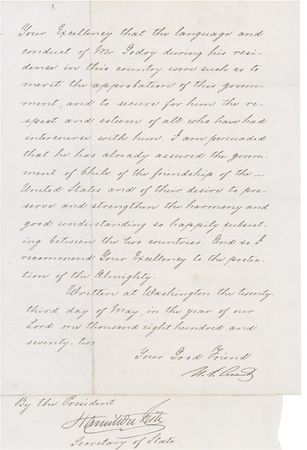 Your Excellency that the language and
conduct of Mr. Godoy during his resi-
dence in this country were such as to
merit the approbation of this govern-
ment, and to secure for him the re-
spect and esteem of all who have had
intercourse with him. I am persuaded
that he has already assured the govern-
ment of Chile of the friendship of the
United States and of their desire to pre-
serve and strengthen the harmony and
good understanding so happily subsist-
ing between the two countries. And so I
recommend Your Excellency to the protec-
tion of the Almighty.
Written at Washington the twenty
third day of May, in the year of our
Lord one thousand eight hundred and
seventy-two
Your Good Friend
U. S. Grant
By the President
Hamilton Fish
Secretary of State.